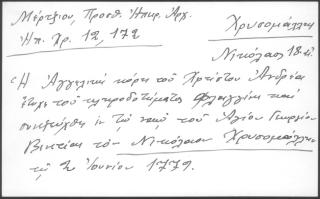 Μέρτζιου, Προσθ. Ηπειρ. Αρχ.
Ηπ. Χρ. 12, 172
Χρυσομάλλης
Νικόλαος 18. αἰ
Ἡ Ἀγγελικὴ κόρη τοῦ Χρίστου Ἀνδρέα
ἔτυχε τοῦ κληροδοτήματος Φλαγγίνη καὶ
συνεζεύχθη ἐν τῷ ναῷ τοῦ Ἁγίου Γεωργίου
Βενετίας τὸν Νικόλαον Χρυσομάλλην
τῇ 2 Ἰουνίου 1772.